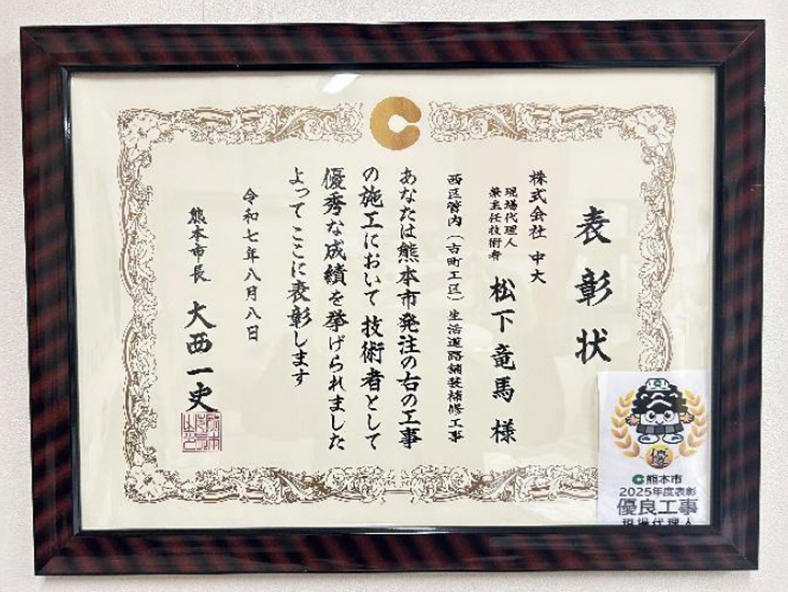 表彰状
株式会社 中大
現場代理人
兼主任技術者
松下竜馬 様
西区管内(古町工区)生活道路舗装補修工事
あなたは熊本市発注の右の工事
の施工において技術者として
優秀な成績を挙げられました
よってここに表彰します
令和七年八月八日
熊本市長 大西一史
優
熊本市
2025年度表彰
優良工事
現場代理人